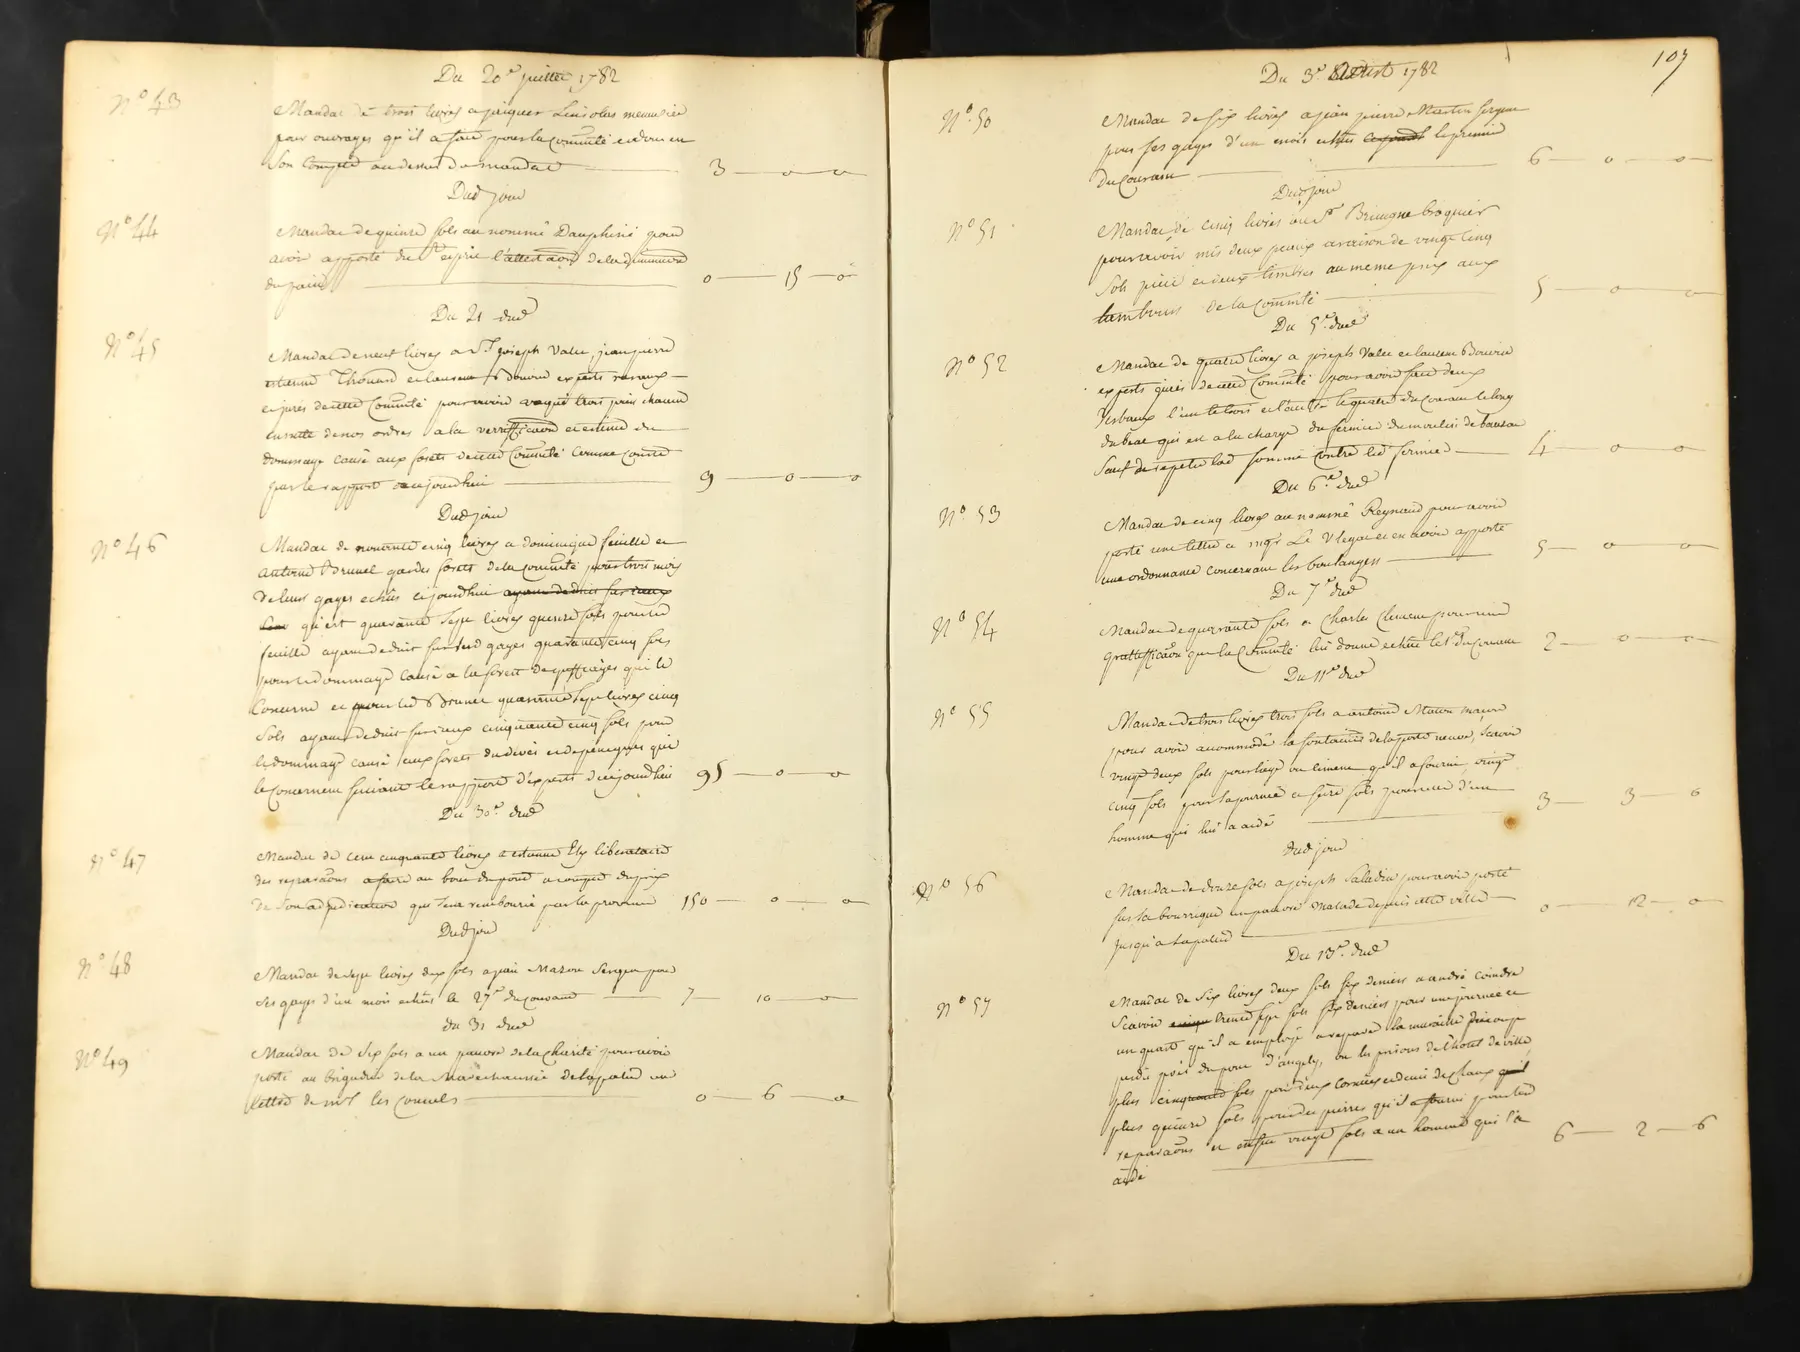 Du 20e juillet 1782
N° 43
Mandat de trois livres a jacques menuisier
pour ouvrages qu'il a fait pour la Comunté
Son Compte au desus du mandat 3 — o — o
Dud jour
N° 44
Mandat de quinze sols au nommé Dauphiné pour
avoir apporté du St esprit l'attestaon de la diminution
du pain 0 — 15 — o
Du 21 dud
N° 45
Mandat de neuf livres a Sr joseph Valu, jean pierre
etienne Thouard et laurent Bouvier experts
et jurés de cette Coṁunté pour avoir vaqué trois jours chacun
ensuite de nos ordres a la veriffica͠on et estime du
dommage causé aux forets de cette Coṁunté Comme Conste
par le rapport de cejourdhui 9 — o — o
Dud jour
N° 46
Mandat de nonante cinq livres a dominique feuille et
antoine Brunel gardes forets de la Coṁunté pour trois mois
de leurs gages echus cejourdhui ayant deduit sur iceux
qu'est quarante sept livres quinze sols pour led
feuille ayant deduit sur sesd gages quarante cinq sols
pour le dommage causé a la forest de qui le
Concerne et pour led Brunel quarante sept livres cinq
sols ayant deduit sur iceux cinquante cinq sols pour
le dommage causé aux forets du devès et de qui
le Concernent suivant le rapport d'experts de cejourdhui 95 — o — o
Du 30e dud
N° 47
Mandat de cent cinquante livres a etienne Ely liberataire
des repara͠ons a faire au bout du pont a compte du prix
de son adjudication qui sera remboursé par la province 150 — o — o
Dud jour
N° 48
Mandat de sept livres dix sols a jean Mazon Sergent pour
ses gages d'un mois echus le 27e du courant 7 — 10 — o
du 31 dud
N° 49
Mandat de six sols a un pauvre de la charité pour avoir
porté au brigadier de la Marechaussée de lapalud une
lettre de mrs les Consuls 0 — 6 — o
107
Du 3e Aoust 1782
N° 50
Mandat de six livres a jean pierre Martin sergent
pour ses gages d'un mois echus le premier
du Courant 6 — o — o
Dud jour
N° 51
Mandat de cinq livres au Sr Brugne broquier
pour avoir mis deux peaux a raison de vingt cinq
sols piece et deux timbres au meme prix aux
tambours de la Coṁunté 5 — o — o
Du 5e dud
N° 52
Mandat de quatre livres a joseph Valu et laurent Bouvier
experts jurés de cette Coṁunté pour avoir fait deux
verbaux l'un le trois et l'autre le quatre du Courant le long
du beal qui est a la charge du fermier du moulin de bauzon
sauf de repeter lad somme Contre led fermier 4 — o — o
Du 6e dud
N° 53
Mandat de cinq livres au nommé Reynaud pour avoir
porté une lettre a mgr Le Vlegat et en avoir apporté
une ordonnance concernant les boulangers 5 — o — o
Du 7e dud
N° 54
Mandat de quarante sols a Charles Clement pour une
grattiffica͠on que la Coṁunté lui donne echue le 1er du Courant 2 — o — o
Du 11e dud
N° 55
Mandat de trois livres trois sols a antoine Maçon
pour avoir accommodé la fontaine de la porte neuve, scavoir
vingt deux sols pour liege ou ciment qu'il a fourni, vingt
cinq sols pour sa journée et seize sols pour celle d'un
homme qui lui a aidé 3 — 3 — o
dud jour
N° 56
Mandat de douze sols a joseph Saladin pour avoir porté
sur sa bourrique un pauvre malade depuis cette ville
jusqu'a lapalud 0 — 12 — o
Du 13e dud
N° 57
Mandat de six livres deux sols six deniers a andré coindre
scavoir trente sept sols six deniers pour une journée et
un quart qu'il a employé a reparer la muraille
près du pont d'angely, ou les prisons de l'hotel de ville,
plus sols pour deux cornues et demi de chaux
plus quinze sols pour des pierres qu'il a fourni pour les d
repara͠ons et enfin vingt sols a un homme qui l'a
aidé 6 — 2 — 6